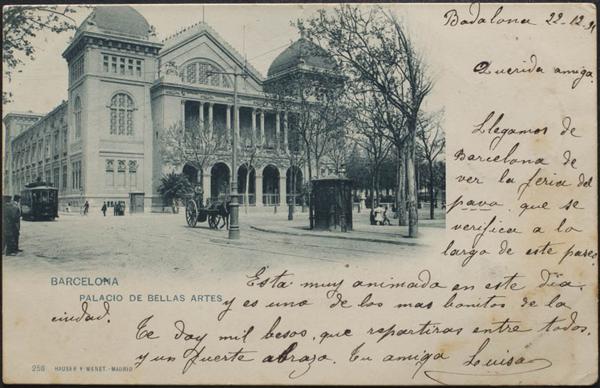 Badalona 22-12-
Querida amiga.
Llegamos de
Barcelona de
ver la feria del
pavo que se
verifica a lo
largo de este paseo
BARCELONA
PALACIO DE BELLAS ARTES
Esta muy animada en este dia
y es uno de los mas bonitos de la
ciudad.
Te doy mil besos, que repartiras entre todos,
y un fuerte abrazo. Tu amiga Louisa
256 HAUSER Y MENET.-MADRID